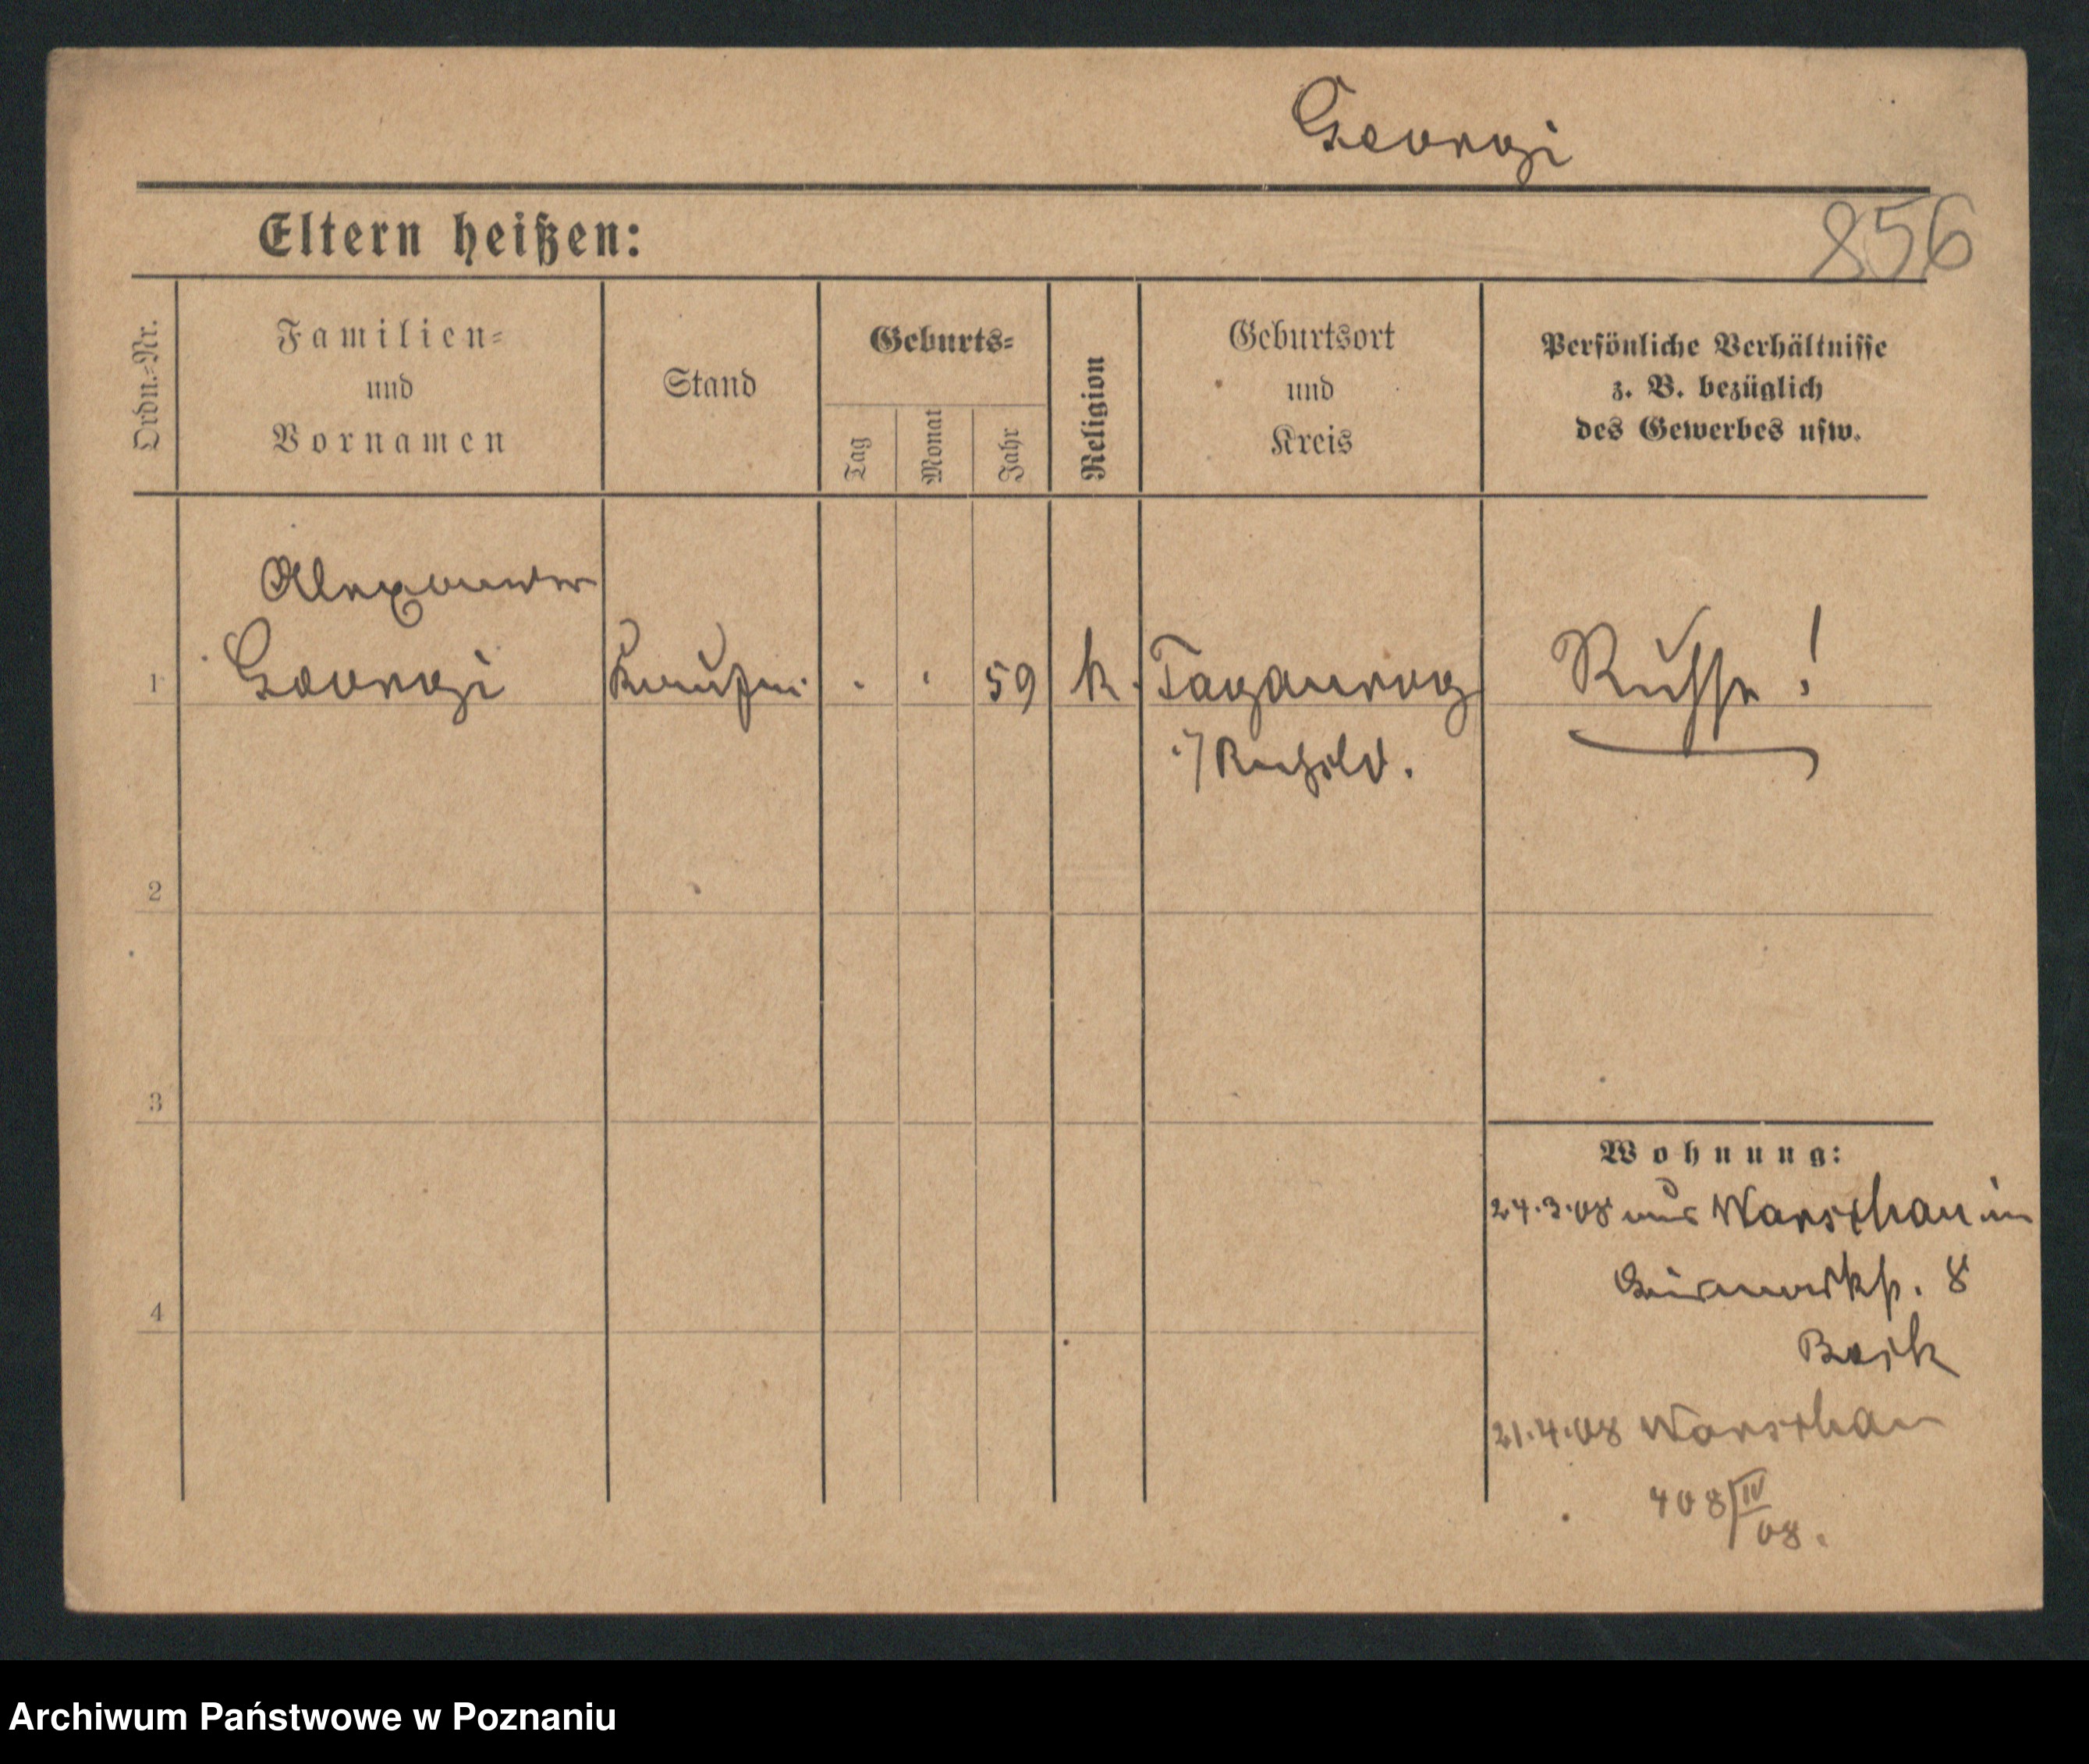 Georgi
Eltern heißen:
856
Ordn.-Nr.
Familien-
und
Vornamen
Stand
Geburts-
Tag
Monat
Jahr
Religion
Geburtsort
und
Kreis
Persönliche Verhältnisse
z. B. bezüglich
des Gewerbes usw.
Alexander
1 Georgi Kaufm. . . 59 k. Taganrog Russe!
i/ Rußld.
2
3
Wohnung:
24.3.08 aus Warschau in
Bismarckstr. 8
4
21.4.08 Warschau
408/IV
08.
Archiwum Państwowe w Poznaniu